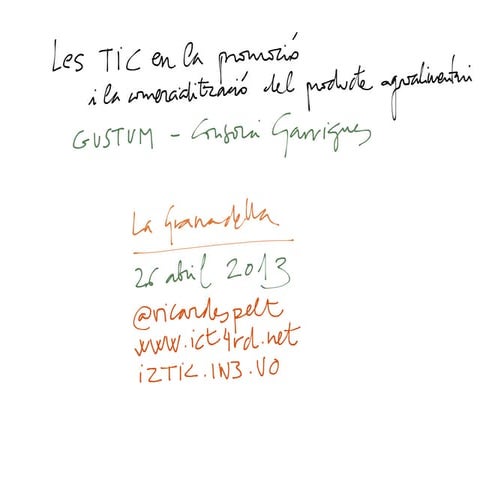 Les TIC en la promoció
i la comercialització del producte agroalimentari
GUSTUM - Consorci Garrigues
La Granadella
26 abril 2013
@ricardespelt
www.ict4rd.net
i2TIC.IN3.VO